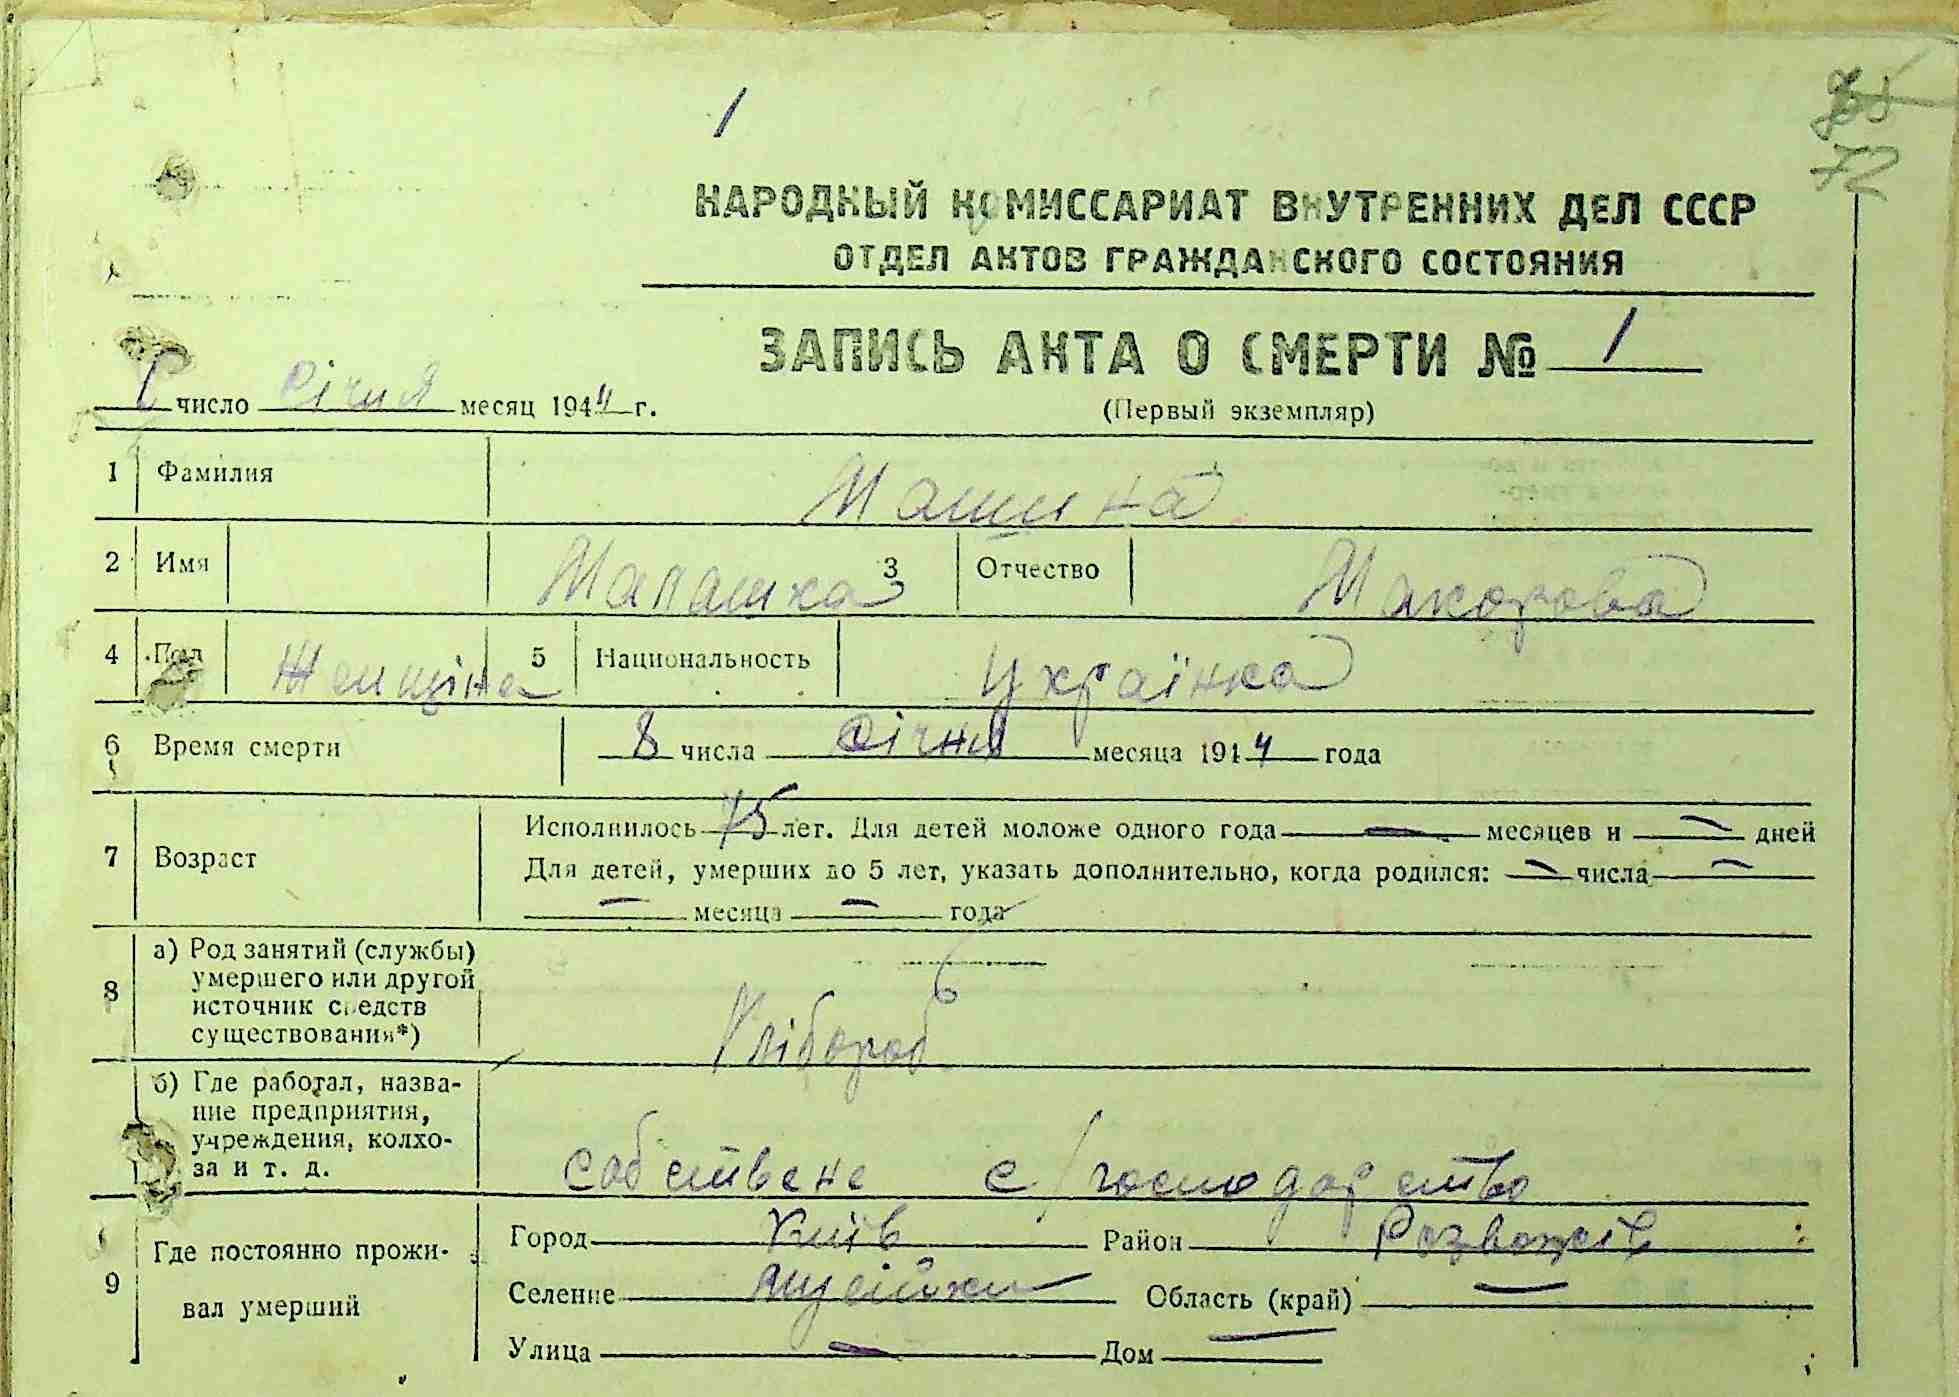 1
72
НАРОДНЫЙ КОМИССАРИАТ ВНУТРЕННИХ ДЕЛ СССР
ОТДЕЛ АКТОВ ГРАЖДАНСКОГО СОСТОЯНИЯ
ЗАПИСЬ АКТА О СМЕРТИ № 1
число січня месяц 1944 г.
(Первый экземпляр)
1 Фамилия Машина
2 Имя Малашка 3 Отчество Макорова
4 Пол Женщіна 5 Национальность Українка
6 Время смерти 8 числа січня месяца 1944 года
7 Возраст Исполнилось 75 лет. Для детей моложе одного года — месяцев и — дней
Для детей, умерших до 5 лет, указать дополнительно, когда родился: — числа —
— месяца — года
8 а) Род занятий (службы)
умершего или другой
источник средств
существования*) Хлібороб
б) Где работал, назва-
ние предприятия,
учреждения, колхо-
за и т. д. собствене с/господарство
9 Где постоянно прожи-
вал умерший
Город Київ Район Розважів
Селение Область (край) —
Улица — Дом —